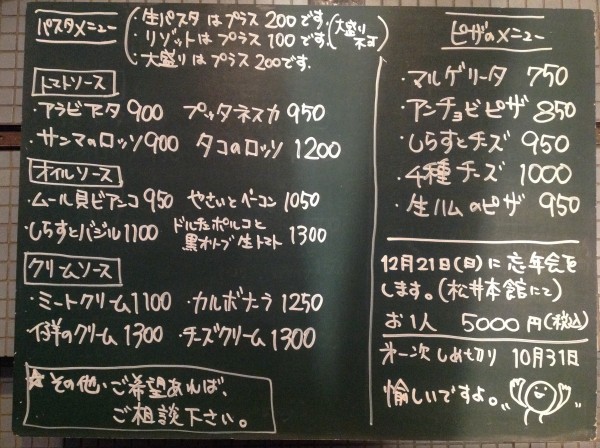 パスタメニュー
・生パスタはプラス200です。
・リゾットはプラス100です。(大盛り不可)
・大盛りはプラス200です。
トマトソース
・アラビアータ 900 プッタネスカ 950
・サンマのロッソ 900 タコのロッソ 1200
オイルソース
・ムール貝ビアンコ 950 やさいとベーコン 1050
・しらすとバジル 1100 ドルチェポルコと
黒オリーブ生トマト 1300
クリームソース
・ミートクリーム 1100 ・カルボナーラ 1250
のクリーム 1300 ・チーズクリーム 1300
☆その他、ご希望あれば、
ご相談下さい。
ピザのメニュー
・マルゲリータ 750
・アンチョビピザ 850
・しらすとチーズ 950
・4種チーズ 1000
・生ハムのピザ 950
12月21日(日)に忘年会を
します。(松井本館にて)
お1人 5000円(税込)
第一次しめ切り 10月31日
愉しいですよ。